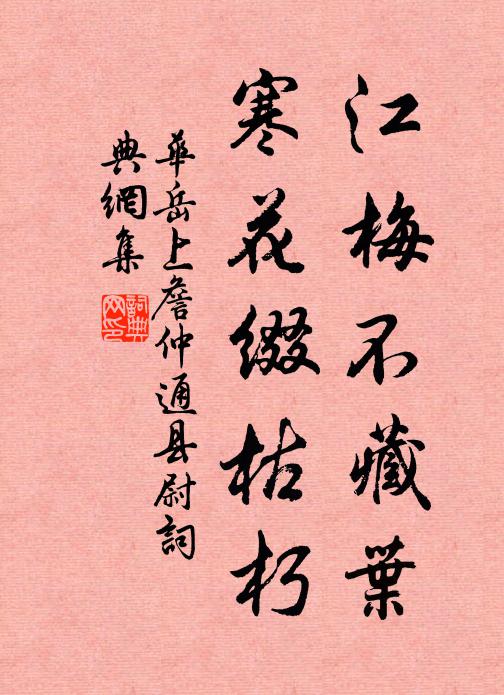 江梅不藏葉
寒花綴枯朽
華岳上詹仲通县尉詞
典網集
詞典网印